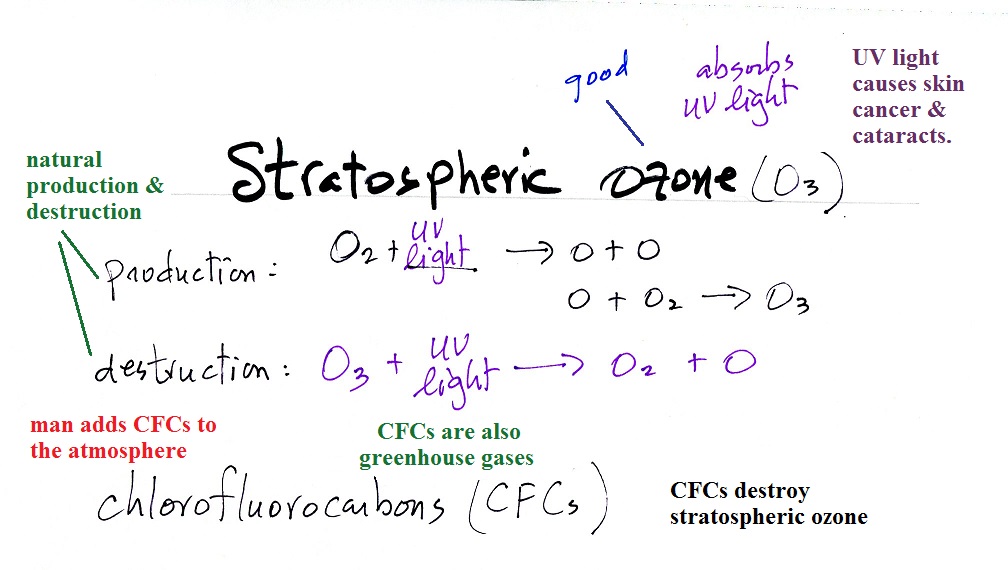 good
absorbs
UV light
UV light
causes skin
cancer &
cataracts.
natural
production &
destruction
Stratospheric ozone (O3)
production : O2 + UV light → O + O
O + O2 → O3
destruction : O3 + UV light → O2 + O
man adds CFCs to
the atmosphere
CFCs are also
greenhouse gases
chlorofluorocarbons (CFCs)
CFCs destroy
stratospheric ozone